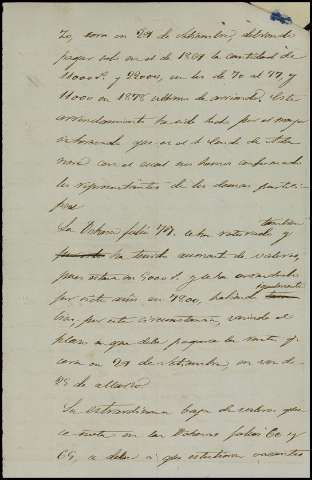 en 29 de Setiembre, debiendo
pagar solo en el de 1861 la cantidad de
11000 rs. y 22000, en los de 70 al 77, y
11000 en 1878 ultimo de arriendo. Este
arrendamiento ha sido hecho por el mayor
interesado que es el Sr. Conde de
con el cual nos hemos conformado
los representantes de los demas partici-
pes.
La Dehesa folio 49, tambien
y ha tenido aumento de valores,
pues estaba en 9000 rs. y se ha arrendado
por siete años en 7800, habiendo igualmente
por esta circunstancia, variado el
plazo en que debe pagarse la renta, y
era en 29 de Setiembre, en vez de
25 de
La extraordinaria baja de valores que
se nota en las Dehesas folios 60 y
69, es debida a que estubieron vacantes